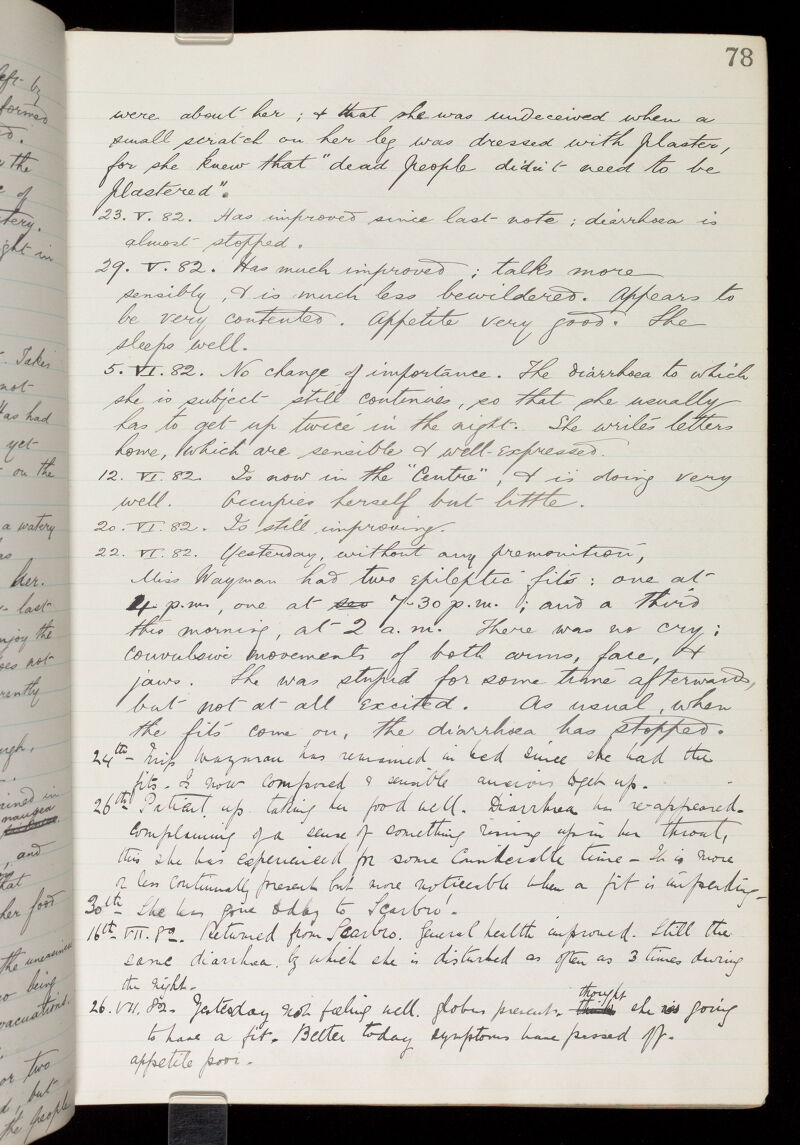 78
were about her ; & that she was undeceived when a
small scratch on her leg was dressed with plaster,
for she knew that "dead people didn't need to be
plastered".
23. V. 82. Has improved since last note ; diarrhoea is
almost stopped.
29. V. 82. Has much improved ; talks more
sensibly, & is much less bewildered. Appears to
be very contented. Appetite very good. She
sleeps well.
5. VI. 82. No change of importance. The diarrhoea to which
she is subject still continues, so that she usually
has to get up twice in the night. She writes letters
home, which are sensible & well-expressed.
12. VI. 82. Is now in the "Centre", & is doing very
well. Occupies herself but little.
20. VI. 82. Is still improving.
22. VI. 82. Yesterday, without any premonition,
Miss Wayman had two epileptic fits : one at
4 p.m., one at 7-30 p.m. ; and a third
this morning, at 2 a.m. There was no cry ;
convulsive movements of both arms, face, &
jaws. She was stupid for some time afterwards,
but not at all excited. As usual, when
the fits come on, the diarrhoea has stopped.
24th - Miss Wayman has remained in bed since she had the
fits. Is now composed & sensible anxious to get up.
26th Patient up taking her food well. Diarrhoea has re-appeared.
Complaining of a sense of something rising up in her throat,
this she has experienced for some considerable time - It is more
or less continually present but more noticeable when a fit is impending -
30th - She has gone today to Scarbro'.
16th VII. 82. Returned from Scarbro. General health improved. Still the
same diarrhoea by which she is disturbed as often as 3 times during
the night.
26. VII. 82. Yesterday not feeling well. globus present. thought she was going
to have a fit. Better today symptoms have passed off.
appetite poor.
left by
formed
the
of
ght in
Takes
not
Has had
yet
on the
a watery
her.
last
enjoy the
does not
rently
ugh,
ained in
and
that
her food
the uneasiness
being
vacuations.
or two
but
the people